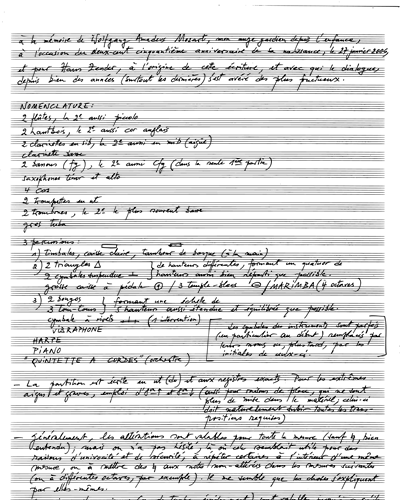 à la mémoire de Wolfgang Amadeus Mozart, mon ange gardien depuis l'enfance,
à l'occasion du deux-cent cinquantième anniversaire de sa naissance, le 27 janvier 2006,
et pour Hans Zender, à l'origine de cette écriture, et avec qui le dialogue,
depuis bien des années (surtout les dernières) s'est avéré des plus fructueux.
NOMENCLATURE:
2 flûtes, la 2e aussi piccolo
2 hautbois, le 2e aussi cor anglais
2 clarinettes en sib, la 2e aussi en mib (aiguë)
clarinette basse
2 bassons (fg), le 2e aussi Cfg (dans la seule partie)
saxophones ténor et alto
4 cors
2 trompettes en ut
2 trombones, le 2e le plus souvent basse
gros tuba
3 percussions:
1) timbales, caisse claire, tambour de basque (à la main)
2) 2 Triangles Δ
de hauteurs différentes, formant un quatuor de
2 cymbales suspendues
hauteurs aussi bien réparti que possible.
grosse caisse à pédale / 3 temple-blocs / MARIMBA (4 octaves)
3) 2 bongos
formant une échelle de
3 tom-toms
5 hauteurs aussi étendue et équilibrée que possible.
cymbale à rivets (1 intervention)
VIBRAPHONE
HARPE
PIANO
"QUINTETTE À CORDES" (orchestre)
Les symboles des instruments sont parfois
(en particulier au début) remplacés par
leurs noms ou, plus tard, par les
initiales de ceux-ci.
- La partition est écrite en ut (do) et aux registres exacts. Pour les extrêmes
aigus et graves, emploi d'8va et 8vb (aussi pour raisons de place, que ce dont
plus de mise dans le matériel, celui-ci
doit naturellement subir toutes les trans-
positions requises)
- Généralement, les altérations sont valables pour toute la mesure (sauf, bien
entendu), mais on n'a pas hésité, où cela semblait utile pour des
raisons d'univocité et de sécurité, à répéter certaines à l'intérieur d'une même
mesure, ou à mettre des ♮ aux notes non-altérées dans les mesures suivantes
(ou à différentes octaves, par exemple). Il me semble que les choses s'expliquent
par elles-mêmes.